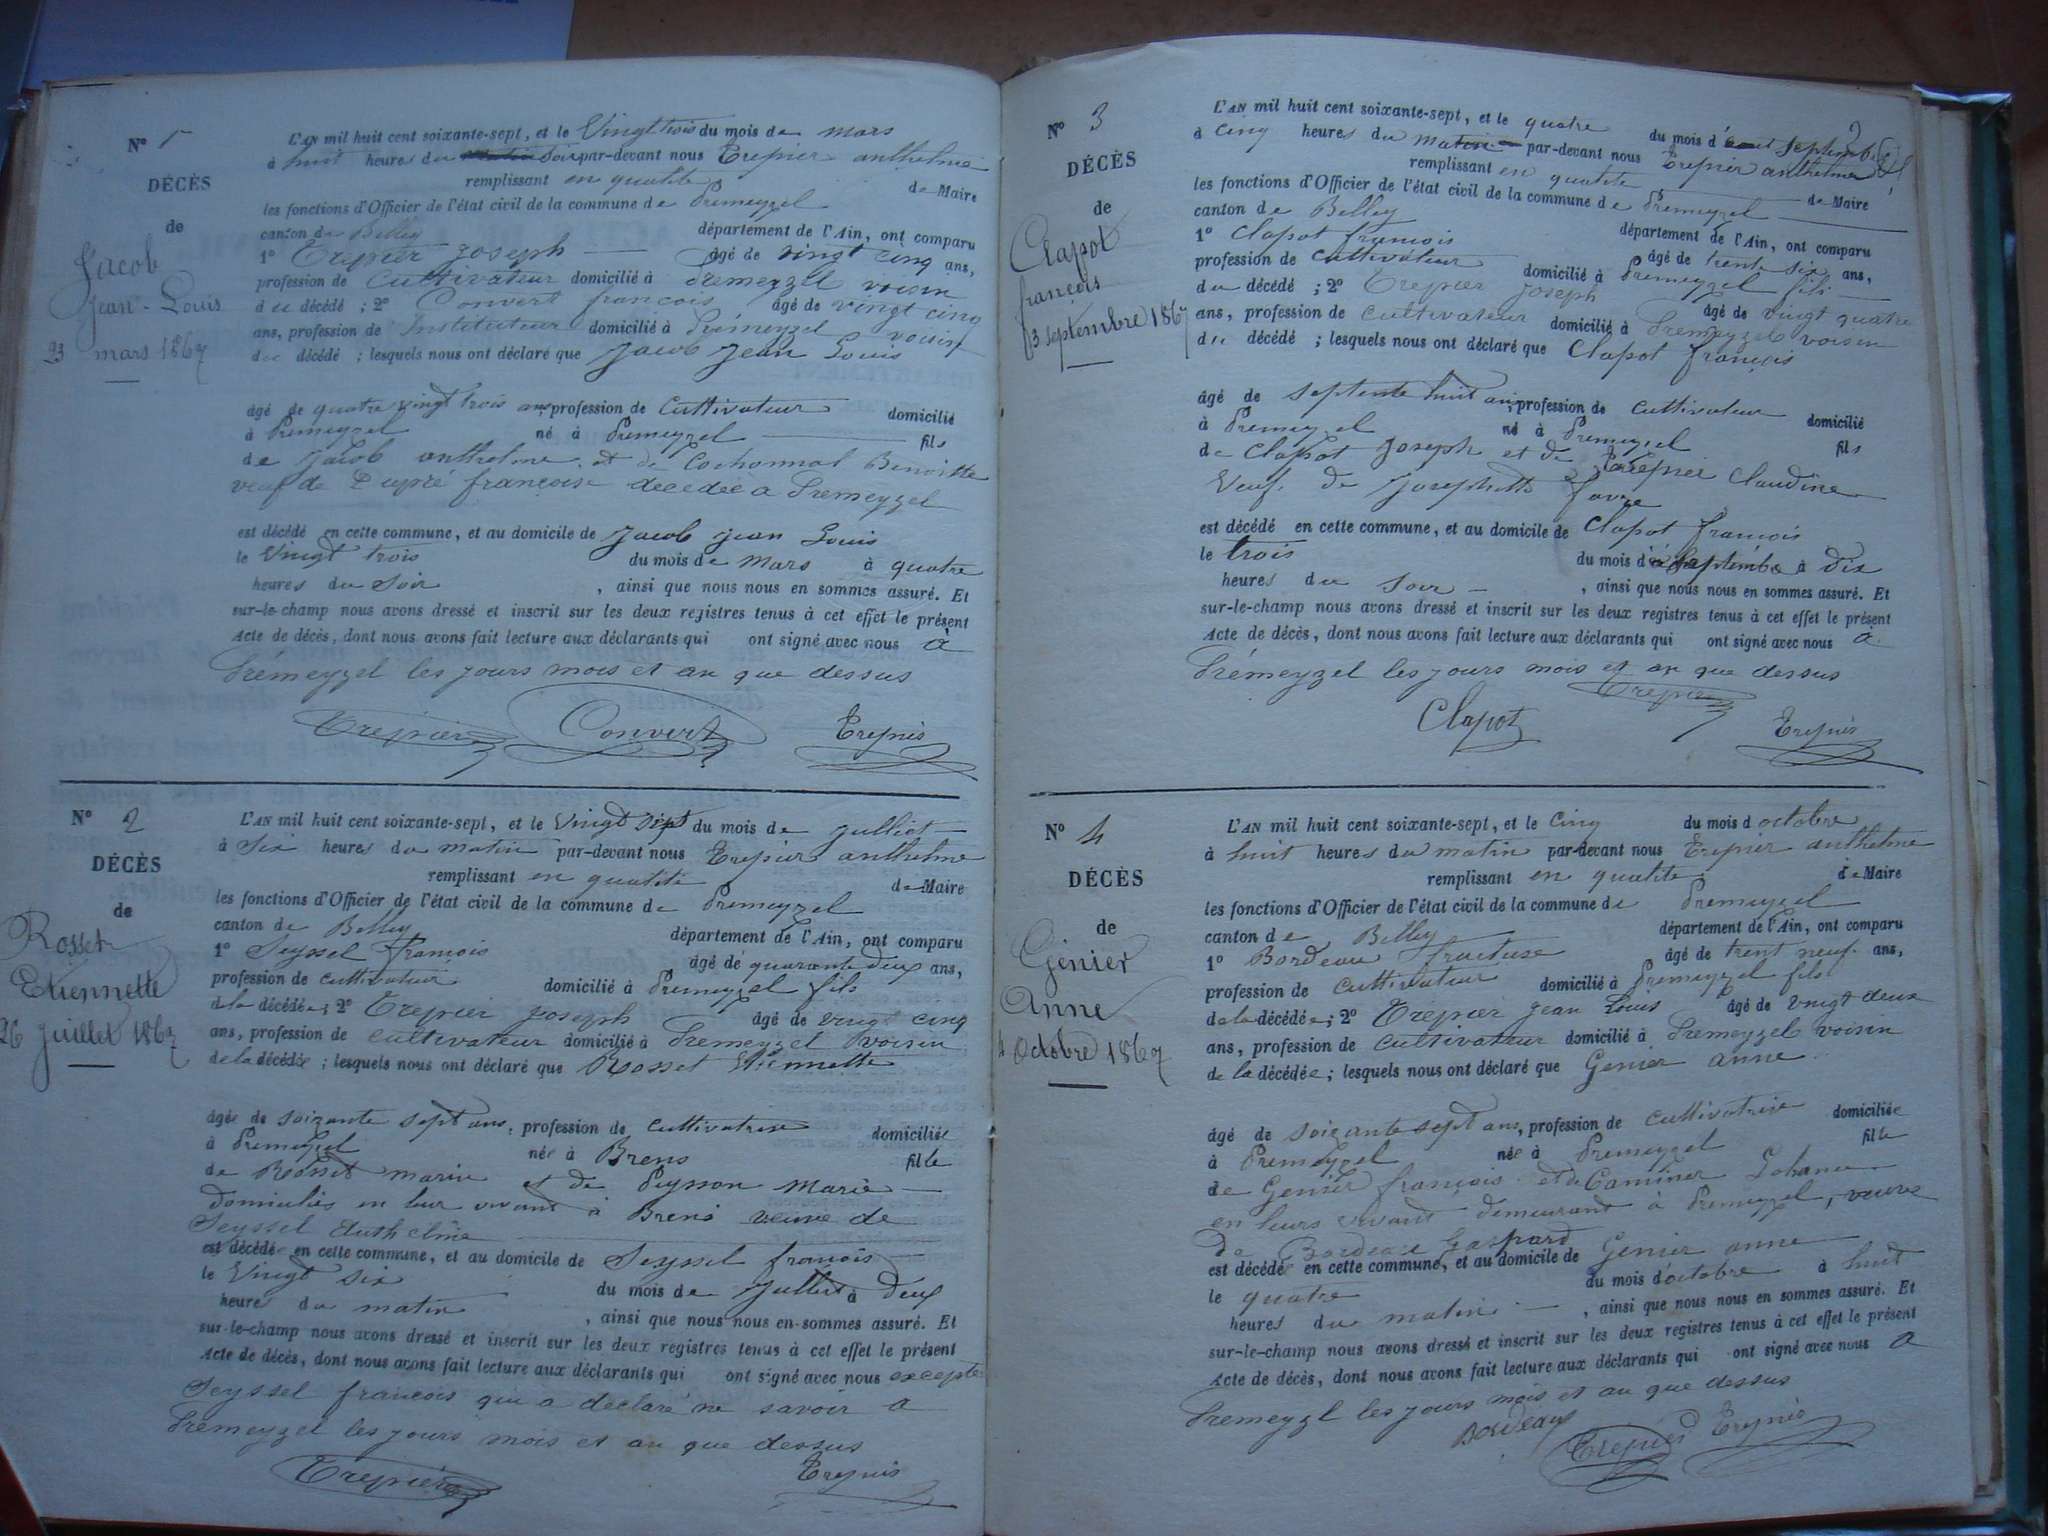 N° 1
DÉCÈS
de
Jacob
Jean-Louis
23 mars 1867
L'AN mil huit cent soixante-sept, et le Vingt trois du mois de mars
à huit heures du matin Soir par-devant nous Trepier anthelme
remplissant en qualité de Maire
les fonctions d'Officier de l'état civil de la commune de Premeyzel
canton de Belley département de l'Ain, ont comparu
1° Trepier joseph âgé de vingt cinq ans,
profession de Cultivateur domicilié à Premeyzel voisin
du décédé ; 2° Convert francois âgé de vingt cinq
ans, profession de Instituteur domicilié à Prémeyzel voisin
du décédé ; lesquels nous ont déclaré que Jacob Jean Louis
âgé de quatre vingt trois ans, profession de Cultivateur domicilié
à Premeyzel né à Premeyzel fils
de Jacob anthelme et de Cochonnat Benoitte
veuf de Dupré françoise décédée a Premeyzel
est décédé en cette commune, et au domicile de Jacob jean Louis
le Vingt trois du mois de Mars à quatre
heures du Soir , ainsi que nous nous en sommes assuré. Et
sur-le-champ nous avons dressé et inscrit sur les deux registres tenus à cet effet le présent
Acte de décès, dont nous avons fait lecture aux déclarants qui ont signé avec nous à
Prémeyzel les jours mois et an que dessus
Trepier Convert Trepier
N° 2
DÉCÈS
de
Rosset
Etiennette
26 juillet 1867
L'AN mil huit cent soixante-sept, et le Vingt sept du mois de julliet
à Six heures du matin par-devant nous Trepier anthelme
remplissant en qualité de Maire
les fonctions d'Officier de l'état civil de la commune de Premeyzel
canton de Belley département de l'Ain, ont comparu
1° Seyssel francois âgé de quarante deux ans,
profession de cultivateur domicilié à Premeyzel fils
de la décédée ; 2° Trepier joseph âgé de vingt cinq
ans, profession de cultivateur domicilié à Premeyzel voisin
de la décédée ; lesquels nous ont déclaré que Rosset Etiennette
âgée de soixante sept ans, profession de cultivatrice domiciliée
à Premeyzel née à Brens fille
de Rosset marin et de Peysson Marie
Domiciliés en leur vivant à Brens veuve de
Seyssel Anthelme
est décédée en cette commune, et au domicile de Seyssel francois
le Vingt six du mois de Julliet à deux
heures du matin , ainsi que nous nous en sommes assuré. Et
sur-le-champ nous avons dressé et inscrit sur les deux registres tenus à cet effet le présent
Acte de décès, dont nous avons fait lecture aux déclarants qui ont signé avec nous excepté
Seyssel francois qui a declaré ne savoir a
Premeyzel les jours mois et an que dessus
Trepier Trepier
N° 3
DÉCÈS
de
Clapot
françois
3 septembre 1867
L'AN mil huit cent soixante-sept, et le quatre du mois d septembre
à cinq heures du matin par-devant nous Trepier anthelme
remplissant en qualité de Maire
les fonctions d'Officier de l'état civil de la commune de Premeyzel
canton de Belley département de l'Ain, ont comparu
1° Clapot francois âgé de trente six ans,
profession de Cultivateur domicilié à Premeyzel fils
du décédé ; 2° Trepier joseph âgé de vingt quatre
ans, profession de cultivateur domicilié à Premeyzel voisin
du décédé ; lesquels nous ont déclaré que Clapot françois
âgé de septente huit ans, profession de cultivateur domicilié
à Premeyzel né à Premeyzel fils
de Clapot Joseph et de Trepier Claudine
Veuf de Josephette favre
est décédé en cette commune, et au domicile de Clapot francois
le trois du mois de Septembre à dix
heures du Soir , ainsi que nous nous en sommes assuré. Et
sur-le-champ nous avons dressé et inscrit sur les deux registres tenus à cet effet le présent
Acte de décès, dont nous avons fait lecture aux déclarants qui ont signé avec nous a
Prémeyzel les jours mois et an que dessus
Trepier
Clapot Trepier
N° 4
DÉCÈS
de
Génier
Anne
4 Octobre 1867
L'AN mil huit cent soixante-sept, et le Cinq du mois d octobre
à huit heures du matin par-devant nous Trepier anthelme
remplissant en qualité de Maire
les fonctions d'Officier de l'état civil de la commune de Premeyzel
canton de Belley département de l'Ain, ont comparu
1° Bordeau âgé de trent neuf ans,
profession de Cultivateur domicilié à Premeyzel fils
de la décédée ; 2° Trepier jean Louis âgé de vingt deux
ans, profession de Cultivateur domicilié à Premeyzel voisin
de la décédée ; lesquels nous ont déclaré que Genier anne
âgé de soixante sept ans, profession de cultivatrice domiciliée
à Premeyzel née à Premeyzel fille
de Genier françois et de Caminet
en leurs vivant demeurant à Premeyzel, veuve
de Bordeau Gaspard
est décédée en cette commune, et au domicile de Genier anne
le quatre du mois d'octobre à huit
heures du matin , ainsi que nous nous en sommes assuré. Et
sur-le-champ nous avons dressé et inscrit sur les deux registres tenus à cet effet le présent
Acte de décès, dont nous avons fait lecture aux déclarants qui ont signé avec nous a
Premeyzl les jours mois et an que dessus
Bordeaux Trepier Trepier